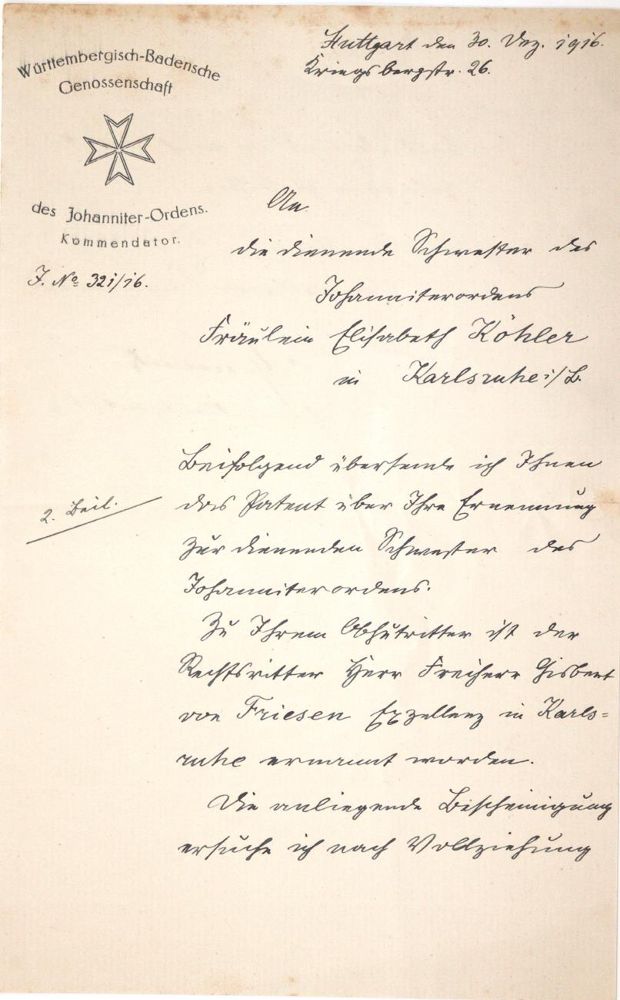 Württembergisch-Badensche
Genossenschaft
des Johanniter-Ordens.
Kommendator.
J. No 321/16.
Stuttgart den 30. Dez. 1916.
Kriegsbergstr. 26.
An
die dienende Schwester des
Johanniterordens
Fräulein Elisabeth Köhler
in Karlsruhe i/B.
2. Beil.
Beifolgend übersende ich Ihnen
das Patent über Ihre Ernennung
zur dienenden Schwester des
Johanniterordens.
Zu Ihrem Obhutritter ist der
Rechtsritter Herr Freiherr Gisbert
von Friesen Exzellenz in Karls=
ruhe ernannt worden.
Die anliegende Bescheinigung
ersuche ich nach Vollziehung